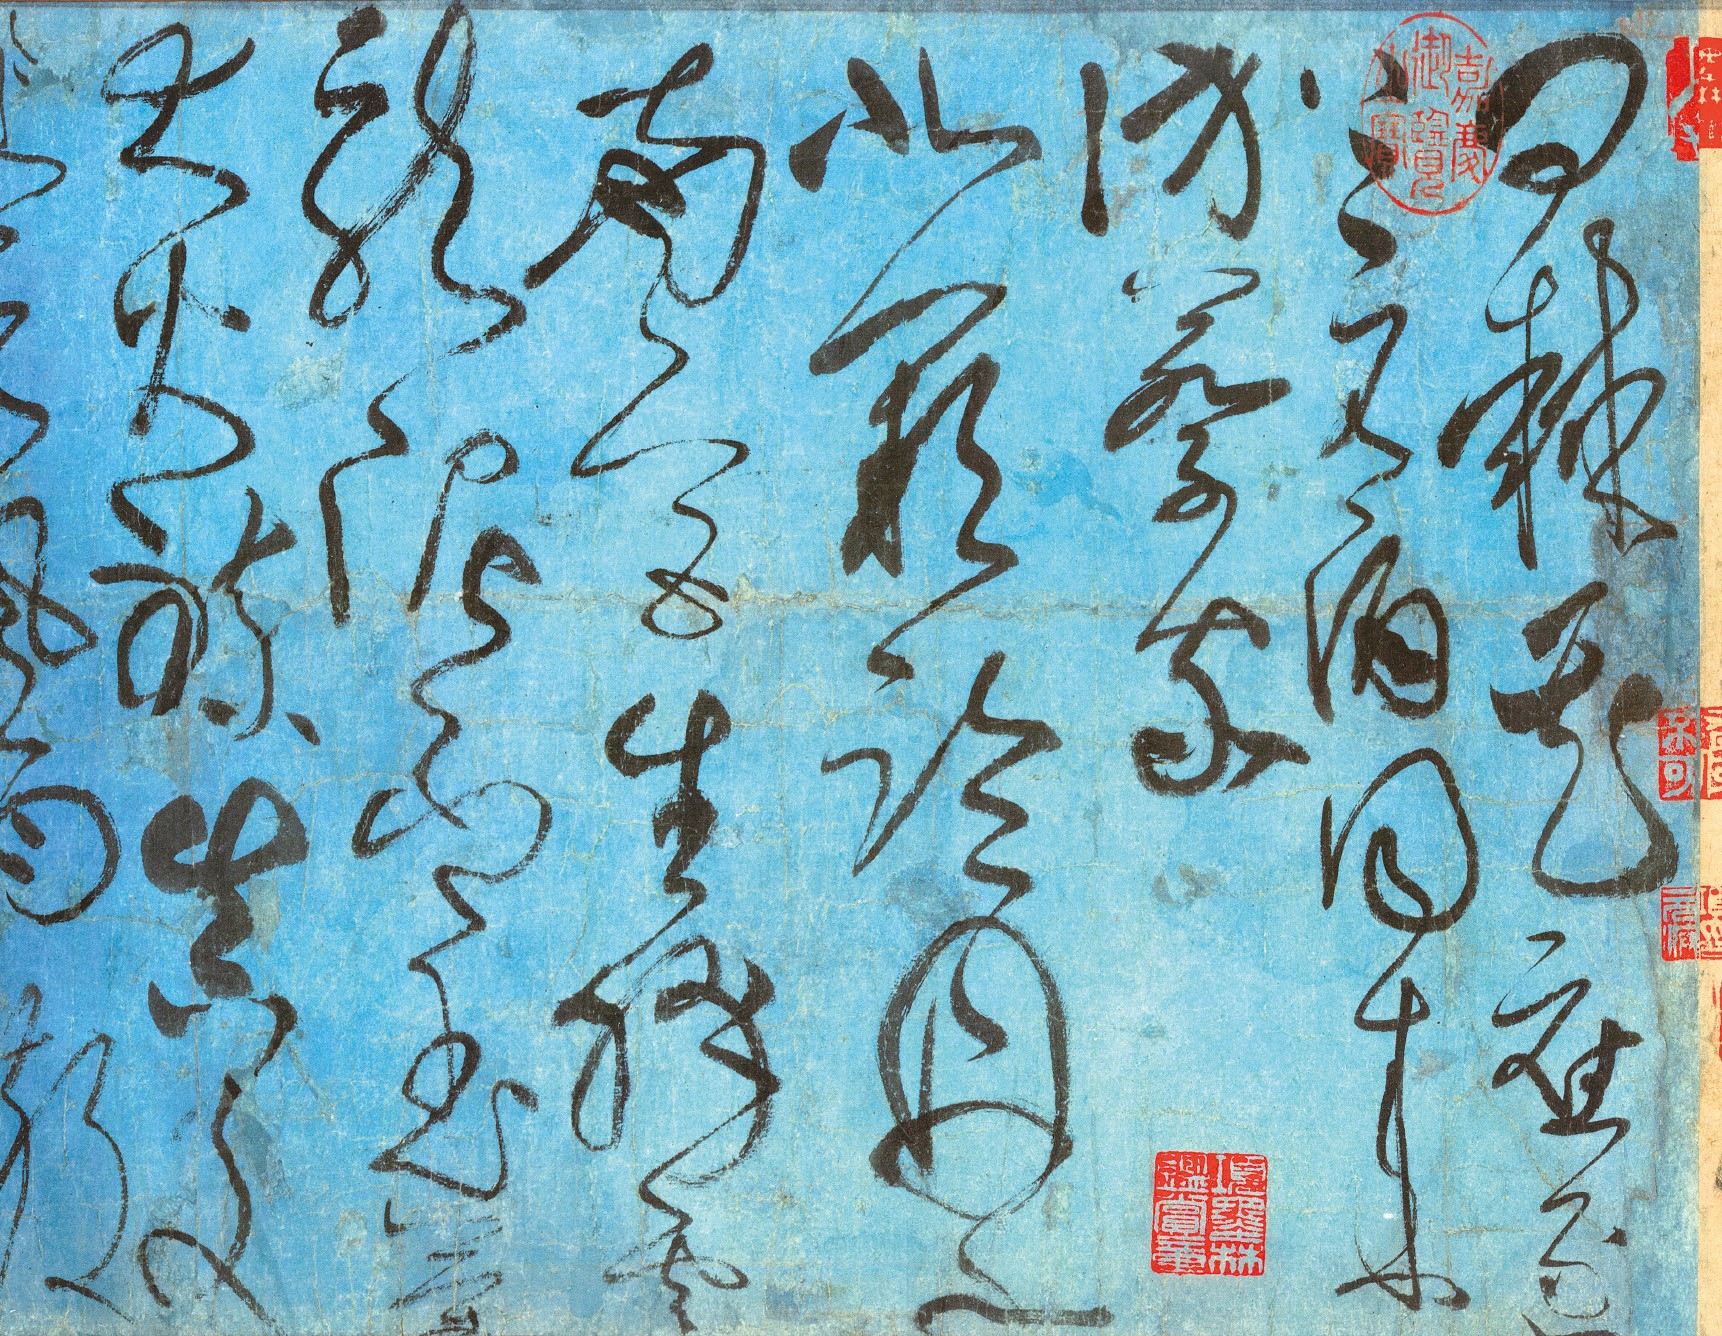 問棗花應逐
上元酒同來
訪蔡家
北闕臨丹水
南宮生絳雲
龍泥印玉簡
大火煉真文
上元風雨散
嘉慶御覽之寶
項墨林鑑賞章